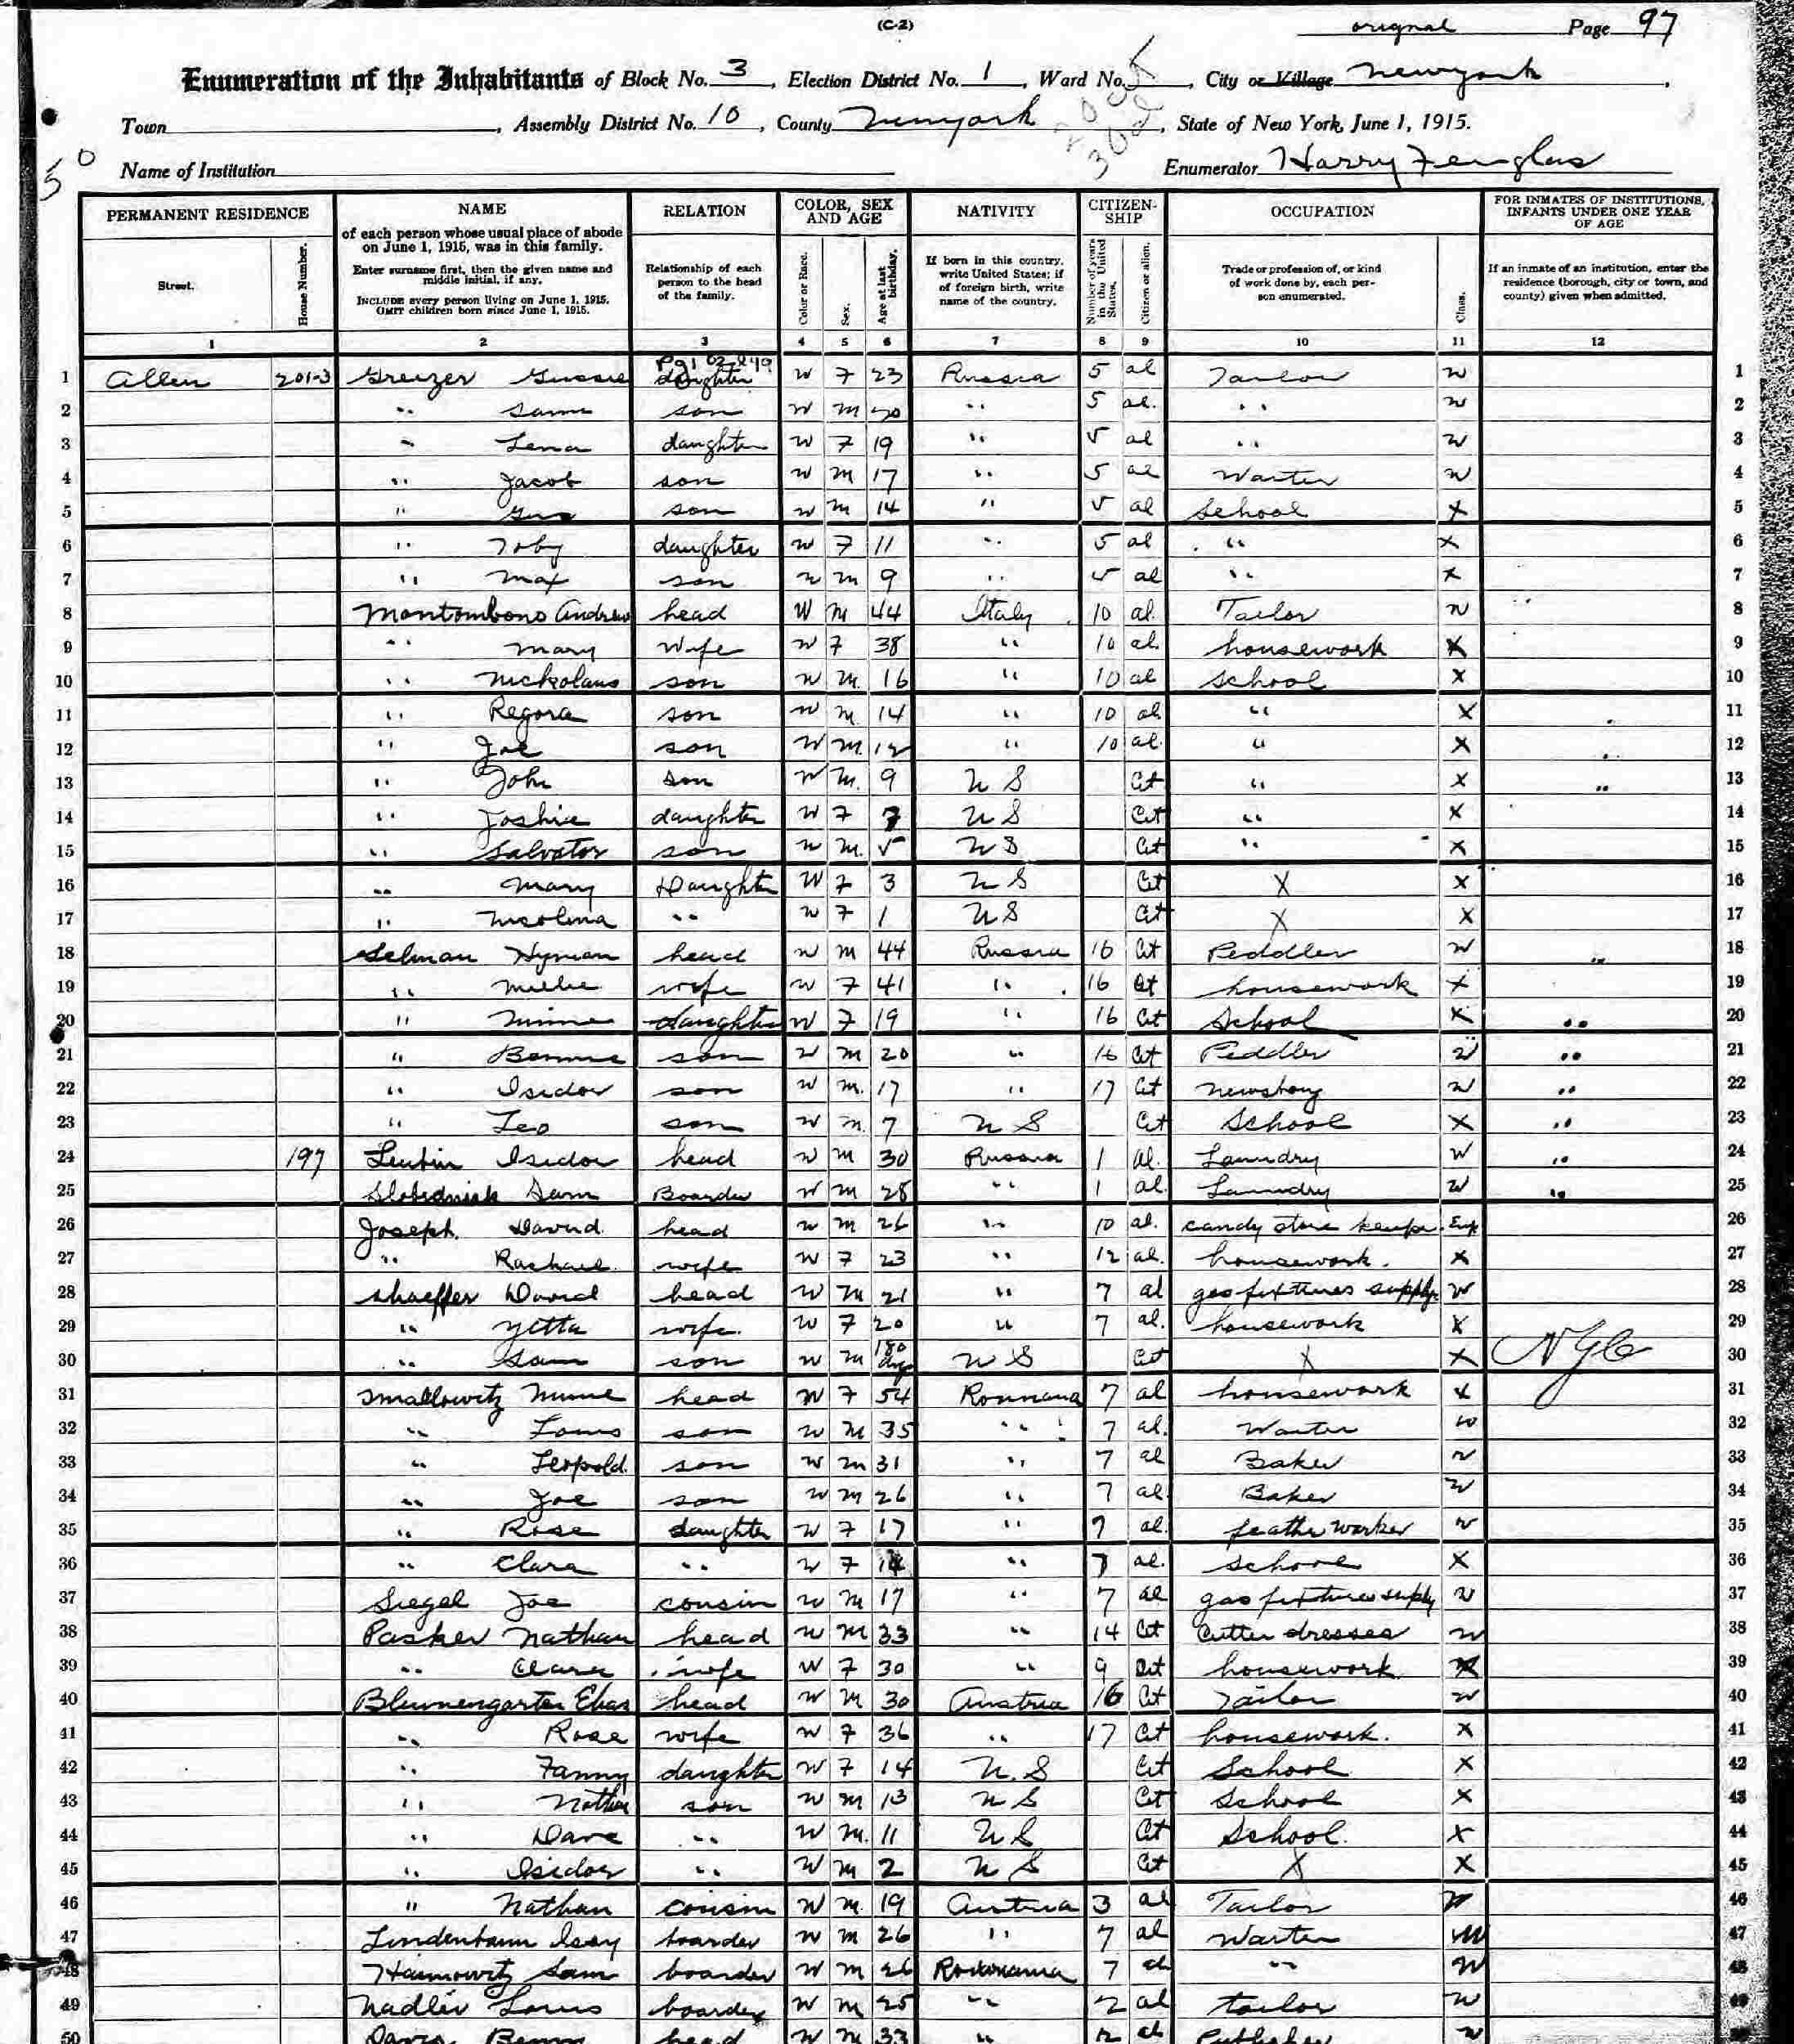 (C-2)
original Page 97
Enumeration of the Inhabitants of Block No. 3, Election District No. 1, Ward No. , City or Village New york,
Town , Assembly District No. 10, County New york, State of New York, June 1, 1915.
Name of Institution Enumerator Harry
PERMANENT RESIDENCE NAME RELATION COLOR, SEX AND AGE NATIVITY CITIZEN-SHIP OCCUPATION FOR INMATES OF INSTITUTIONS, INFANTS UNDER ONE YEAR OF AGE
Street. House Number. of each person whose usual place of abode on June 1, 1915, was in this family. Enter surname first, then the given name and middle initial, if any. INCLUDE every person living on June 1, 1915. OMIT children born since June 1, 1915. Relationship of each person to the head of the family. Color or Race. Sex. Age at last birthday. If born in this country, write United States; if of foreign birth, write name of the country. Number of years in the United States. Citizen or alien. Trade or profession of, or kind of work done by, each person enumerated. Class. If an inmate of an institution, enter the residence (borough, city or town, and county) given when admitted.
1 2 3 4 5 6 7 8 9 10 11 12
1 Allen 201-3 Greizer Gussie daughter W F 23 Russia 5 al Tailor W 1
2 " Sam son W M 20 " 5 al. " W 2
3 " Lena daughter W F 19 " 5 al " W 3
4 " Jacob son W M 17 " 5 al Waiter W 4
5 " Gus son W M 14 " 5 al School X 5
6 " Toby daughter W F 11 " 5 al " X 6
7 " Max son W M 9 " 5 al " X 7
8 Montombono Andrew head W M 44 Italy 10 al. Tailor W 8
9 " Mary Wife W F 38 " 10 al. housework X 9
10 " Nickolaus son W M. 16 " 10 al School X 10
11 " Regora son W M. 14 " 10 al " X 11
12 " Joe son W M. 12 " 10 al. " X 12
13 " John son W M. 9 U S Cit " X 13
14 " Joshie daughter W F 7 U S Cit " X 14
15 " Salvator son W M. 5 U S Cit " X 15
16 " Mary Daughter W F 3 U S Cit X X 16
17 " Nicolina " W F 1 U S Cit X X 17
18 Selman Hyman head W M 44 Russia 16 Cit Peddler W 18
19 " Millie wife W F 41 " 16 Cit housework X 19
20 " Minnie daughter W F 19 " 16 Cit School X 20
21 " Bennie son W M 20 " 16 Cit Peddler W 21
22 " Isidor son W M. 17 " 17 Cit newsboy W 22
23 " Leo son W M. 7 U S Cit School X 23
24 197 Isidor head W M 30 Russia 1 al. Laundry W 24
25 Slobidniak Sam Boarder W M 28 " 1 al. Laundry W 25
26 Joseph David head W M 26 " 10 al. candy store keeper Emp 26
27 " Rachael wife W F 23 " 12 al. housework. X 27
28 Shaeffer David head W M 21 " 7 al gas fixtures supply W 28
29 " Yetta wife. W F 20 " 7 al. housework X 29
30 " Sam son W M 180 dys U S Cit X X NYC 30
31 Smallowitz Minnie head W F 54 Roumania 7 al housework X 31
32 " Louis son W M 35 " 7 al. Waiter W 32
33 " Leopold son W M 31 " 7 al Baker W 33
34 " Joe son W M 26 " 7 al Baker W 34
35 " Rose daughter W F 17 " 7 al. feather worker W 35
36 " Clara " W F 14 " 7 al. School X 36
37 Siegel Joe cousin W M 17 " 7 al gas fixtures supply W 37
38 Pasker Nathan head W M 33 " 14 Cit Cutter dresses W 38
39 " Clara wife W F 30 " 9 Cit housework X 39
40 Blumengarten Elias head W M 30 Austria 16 Cit Tailor W 40
41 " Rose wife W F 36 " 17 Cit housework. X 41
42 " Fanny daughter W F 14 U.S Cit School X 42
43 " Nathan son W M 13 U S Cit School X 43
44 " Dave " W M. 11 U S Cit School. X 44
45 " Isidor " W M 2 U S Cit X X 45
46 " Nathan cousin W M. 19 Austria 3 al Tailor W 46
47 Lindenbaum Isay boarder W M 26 " 7 al Waiter W 47
48 Haimowitz Sam boarder W M 26 Roumania 7 al " W 48
49 Nadler Louis boarder W M 25 " 2 al tailor W 49
50 Davis Benny head W M 33 " 12 al Publisher W